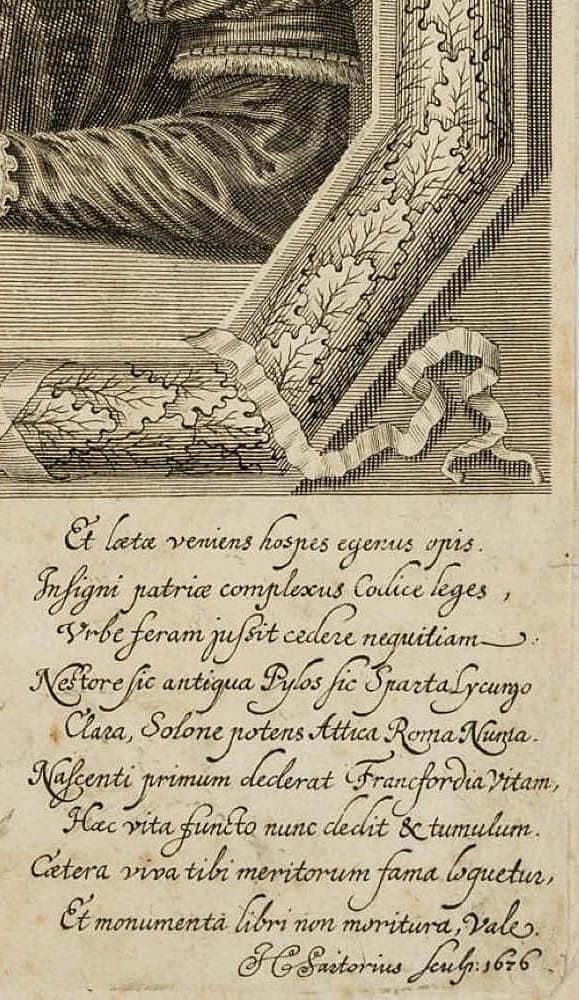 Et lætæ veniens hospes egenus opis.
Insigni patriæ complexus Codice leges,
Vrbe feram jussit cedere nequitiam.
Nestore sic antiqua Pylos sic Sparta Lycurgo
Clara, Solone potens Attica Roma Numa.
Nascenti primum dederat Francfordia vitam,
Hæc vita functo nunc dedit & tumulum.
Cætera viva tibi meritorum fama loquetur,
Et monumenta libri non moritura, Vale.
H Sartorius sculp: 1676